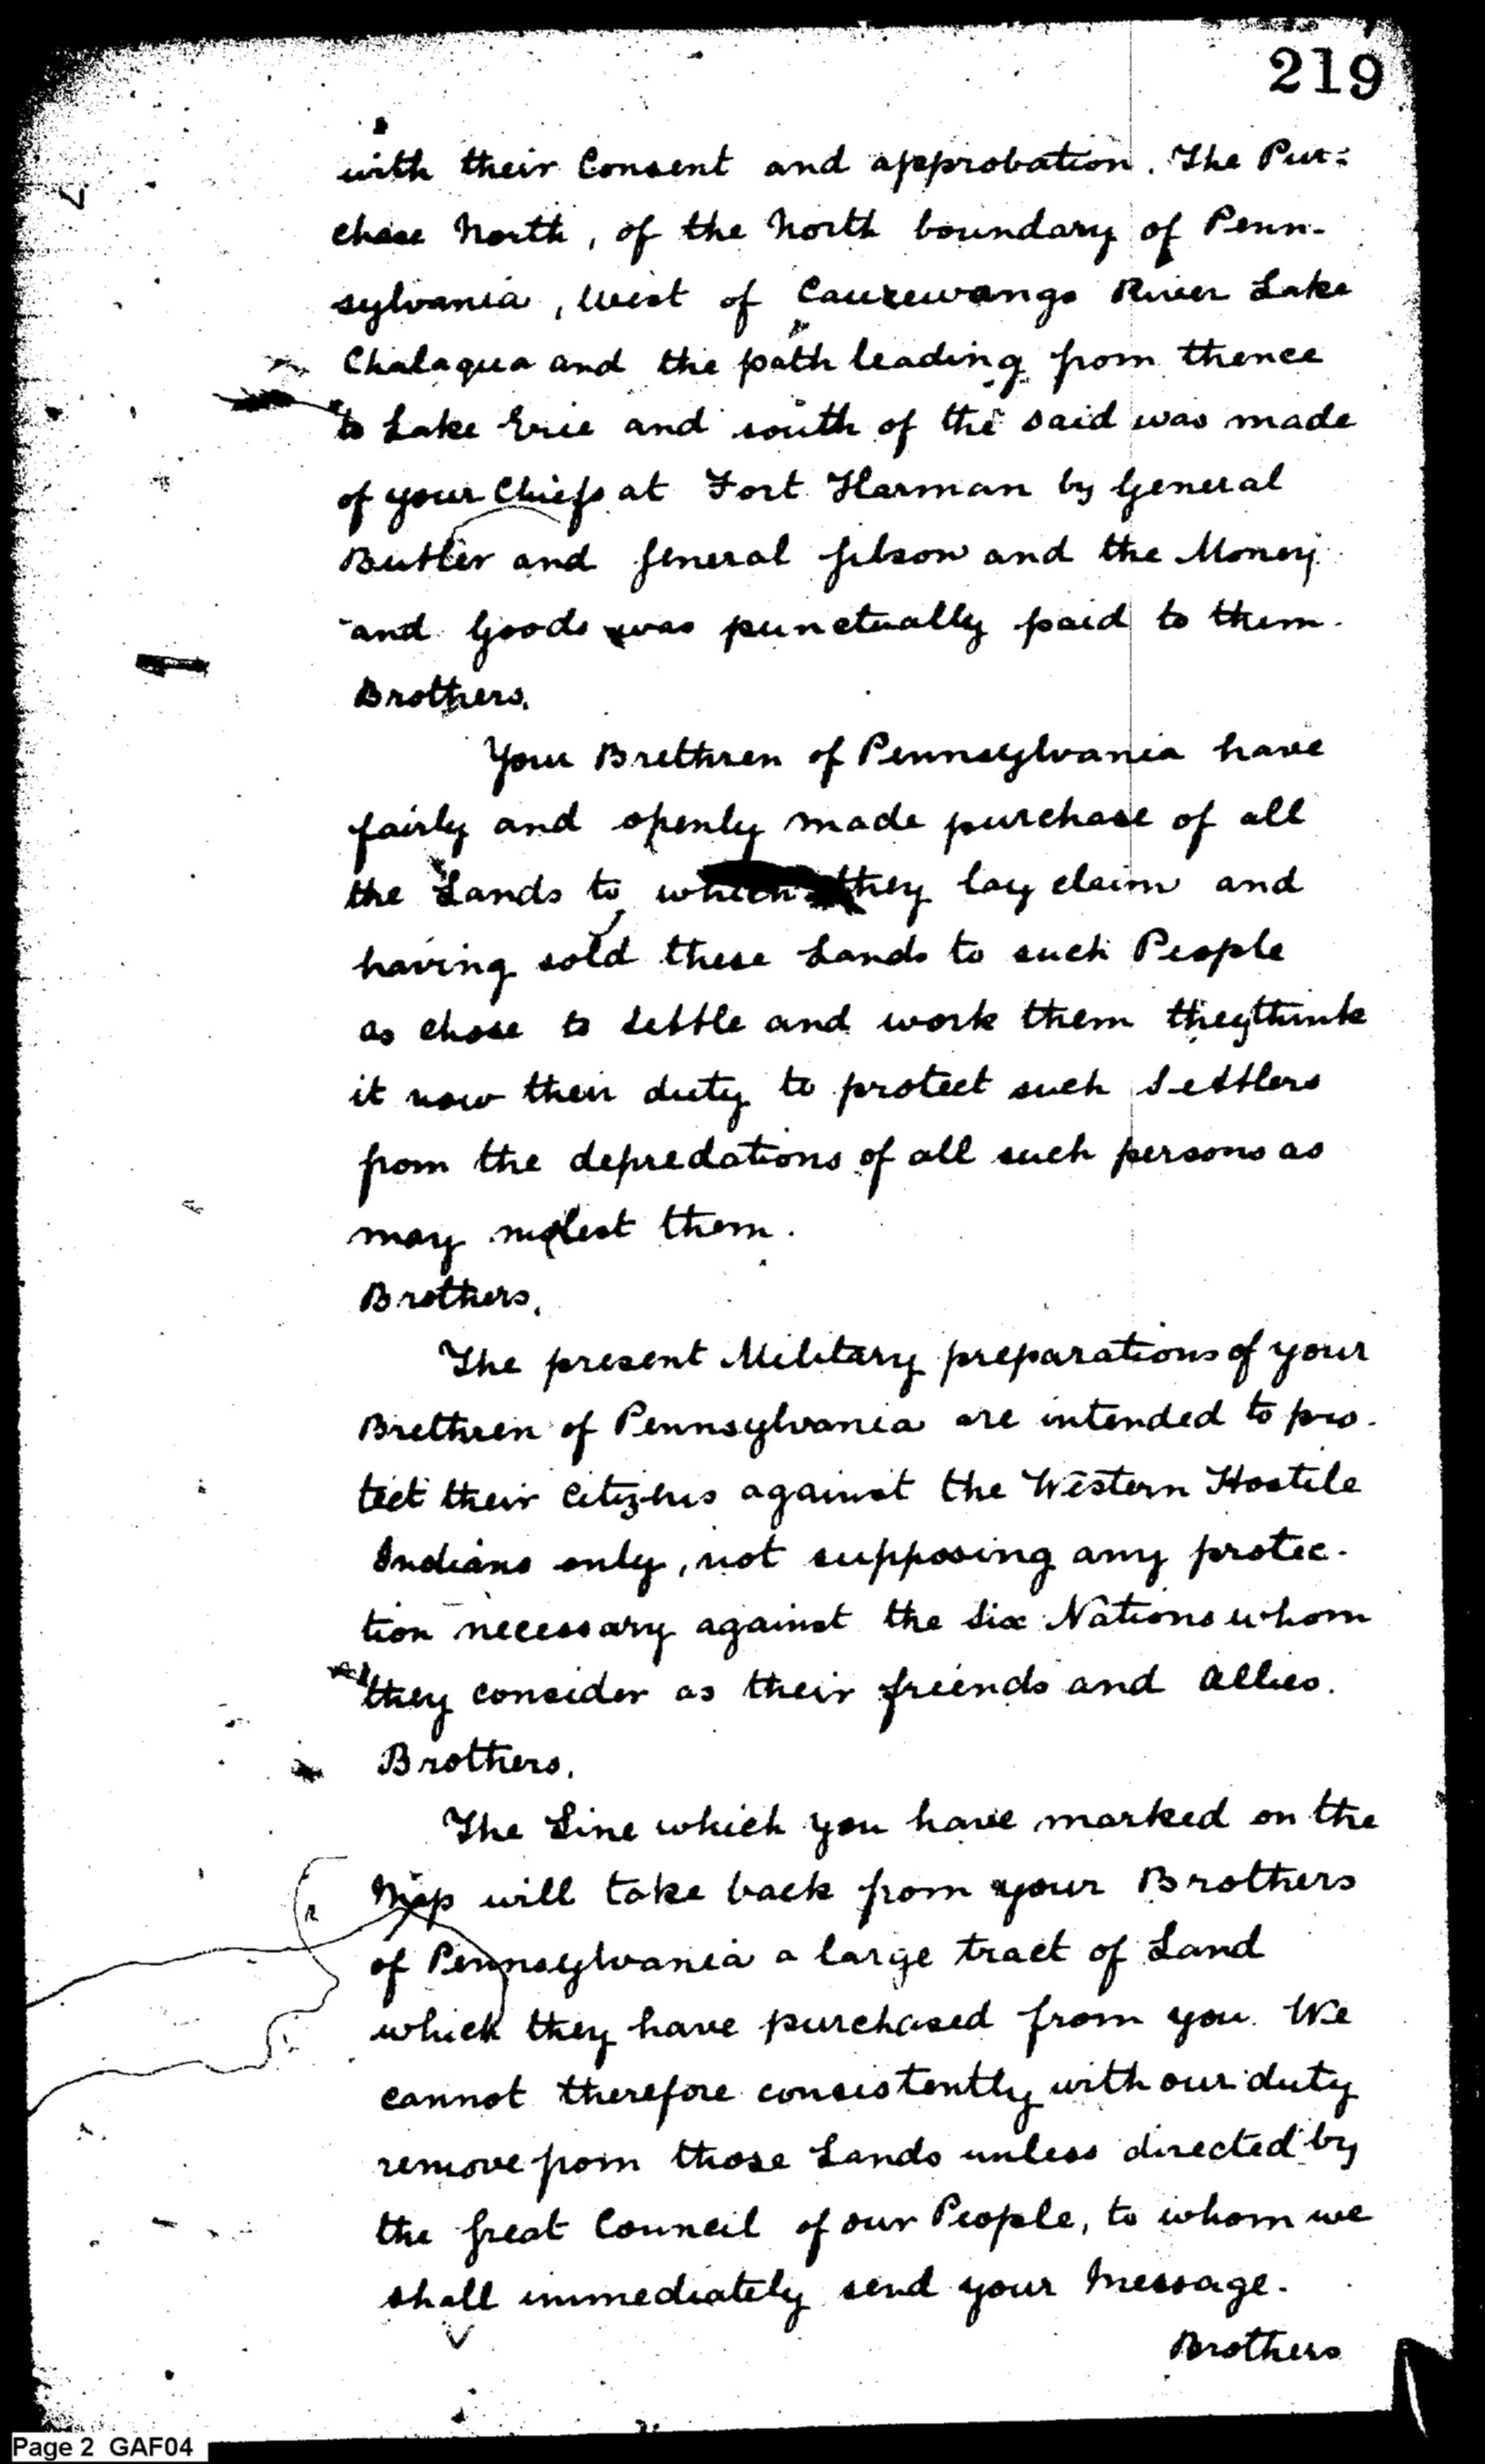 219
with their Consent and approbation. The Pur=
chase North, of the North boundary of Penn-
sylvania, West of Cauxewango River Lake
Chalaqua and the path leading from thence
to Lake Erie and south of the said was made
of your Chiefs at Fort Harman by General
Butler and General Gibson and the Money
and Goods was punctually paid to them.
Brothers,
Your Brethren of Pennsylvania have
fairly and openly made purchase of all
the Lands to which they lay claim and
having sold these Lands to such People
as chose to settle and work them they think
it now their duty to protect such Settlers
from the depredations of all such persons as
may molest them.
Brothers,
The present Military preparations of your
Brethren of Pennsylvania are intended to pro-
tect their Citizens against the Western Hostile
Indians only, not supposing any protec-
tion necessary against the Six Nations whom
they consider as their friends and Allies.
Brothers,
The Line which you have marked on the
Map will take back from your Brothers
of Pennsylvania a large tract of Land
which they have purchased from you. We
cannot therefore consistently with our duty
remove from those Lands unless directed by
the Great Council of our People, to whom we
shall immediately send your Message.
Brothers
Page 2 GAF04